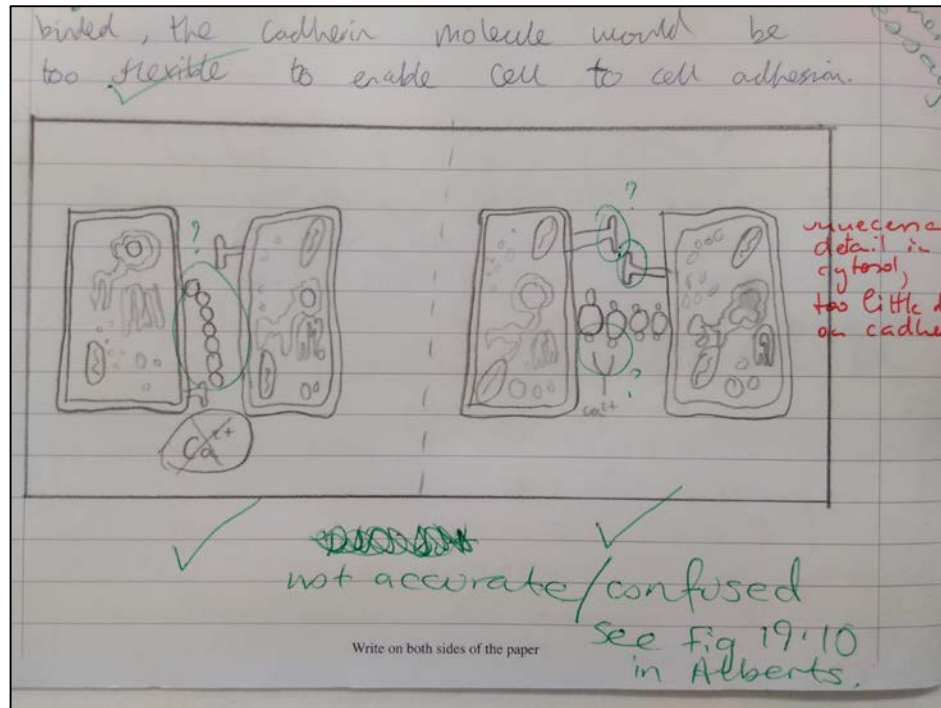 binded, the cadherin molecule would be
too flexible to enable cell to cell adhesion.
?
?
?
unnecessary
detail in
cytosol,
too little
on
Ca2+
Ca2+
not accurate/confused
see fig 19.10
in Alberts.
Write on both sides of the paper